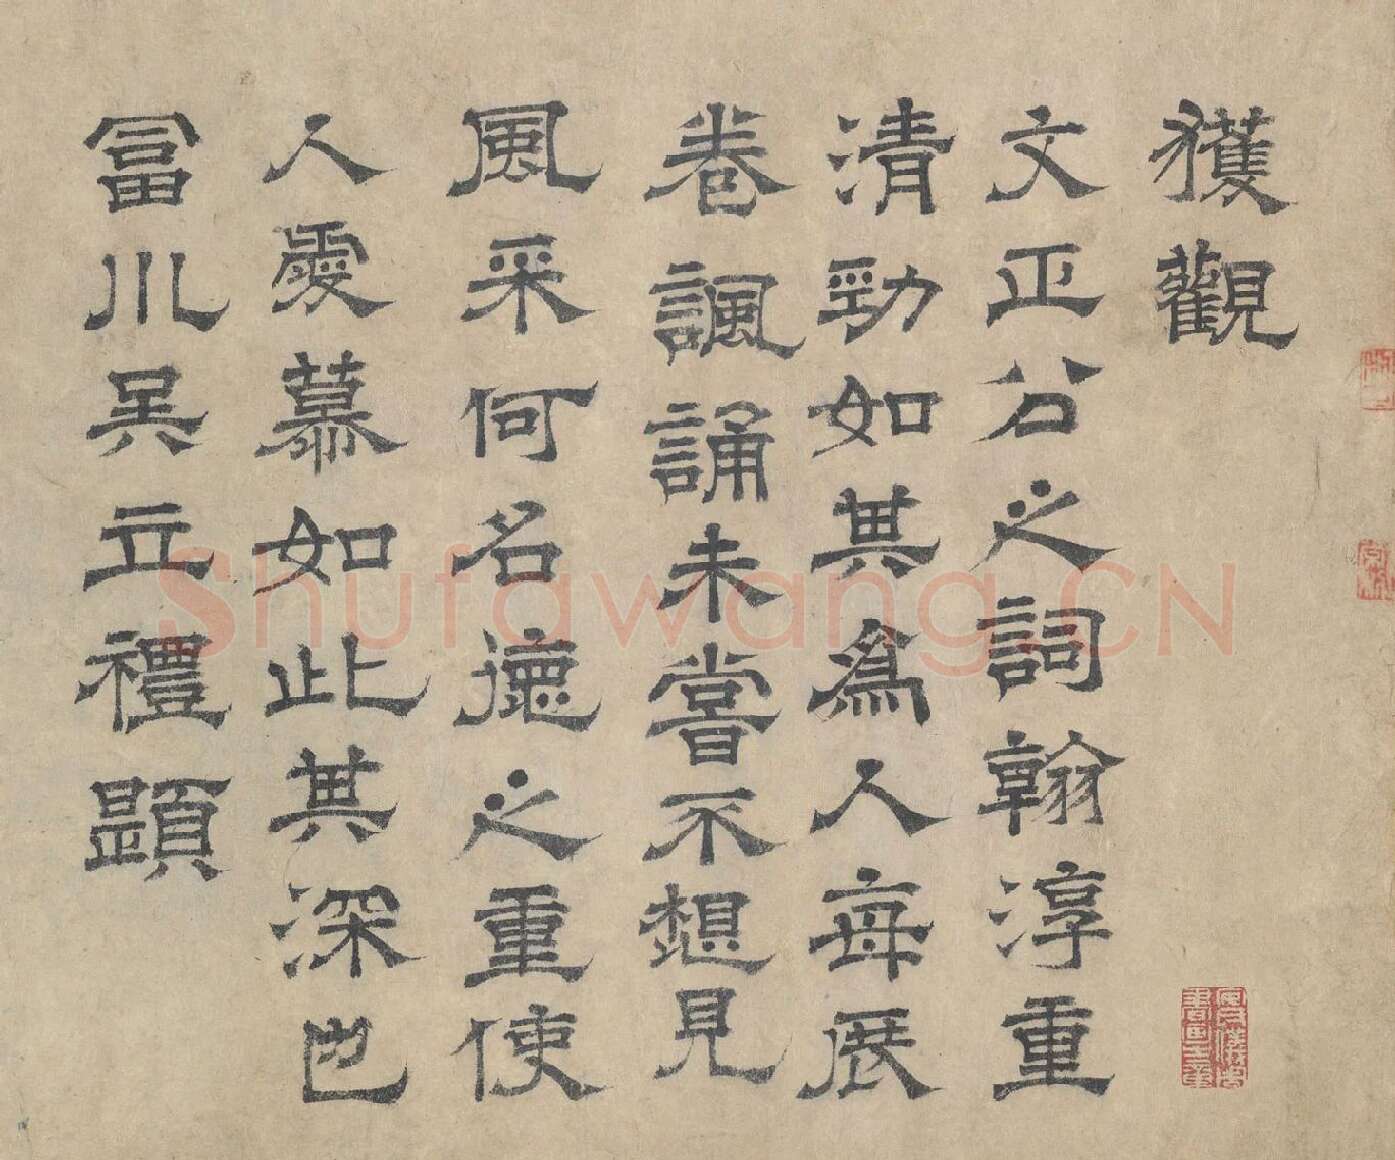 獲觀
文正公之詞翰淳重
清勁如其爲人每展
卷諷誦未嘗不想見
風采何名德之重使
人愛慕如此其深也
冨川吴立禮題
Shufawang.CN